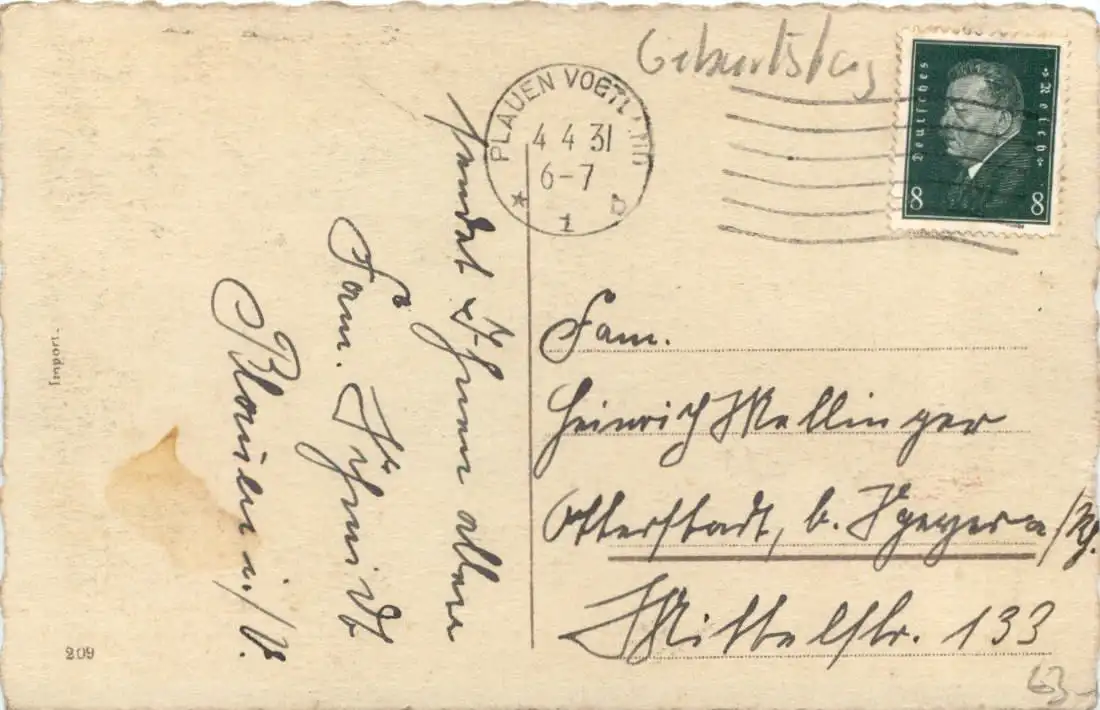 Geburtstag
PLAUEN VOGTLAND
4 4 31
6-7
* 1 b
Deutsches
Reich
8 8
sendet Ihnen allen
Fam. Schmidt
Plauen i./V.
Fam.
Heinrich Mellinger
Otterstadt, b. Speyer a/Rh.
Mittelstr. 133
Import.
209
63-